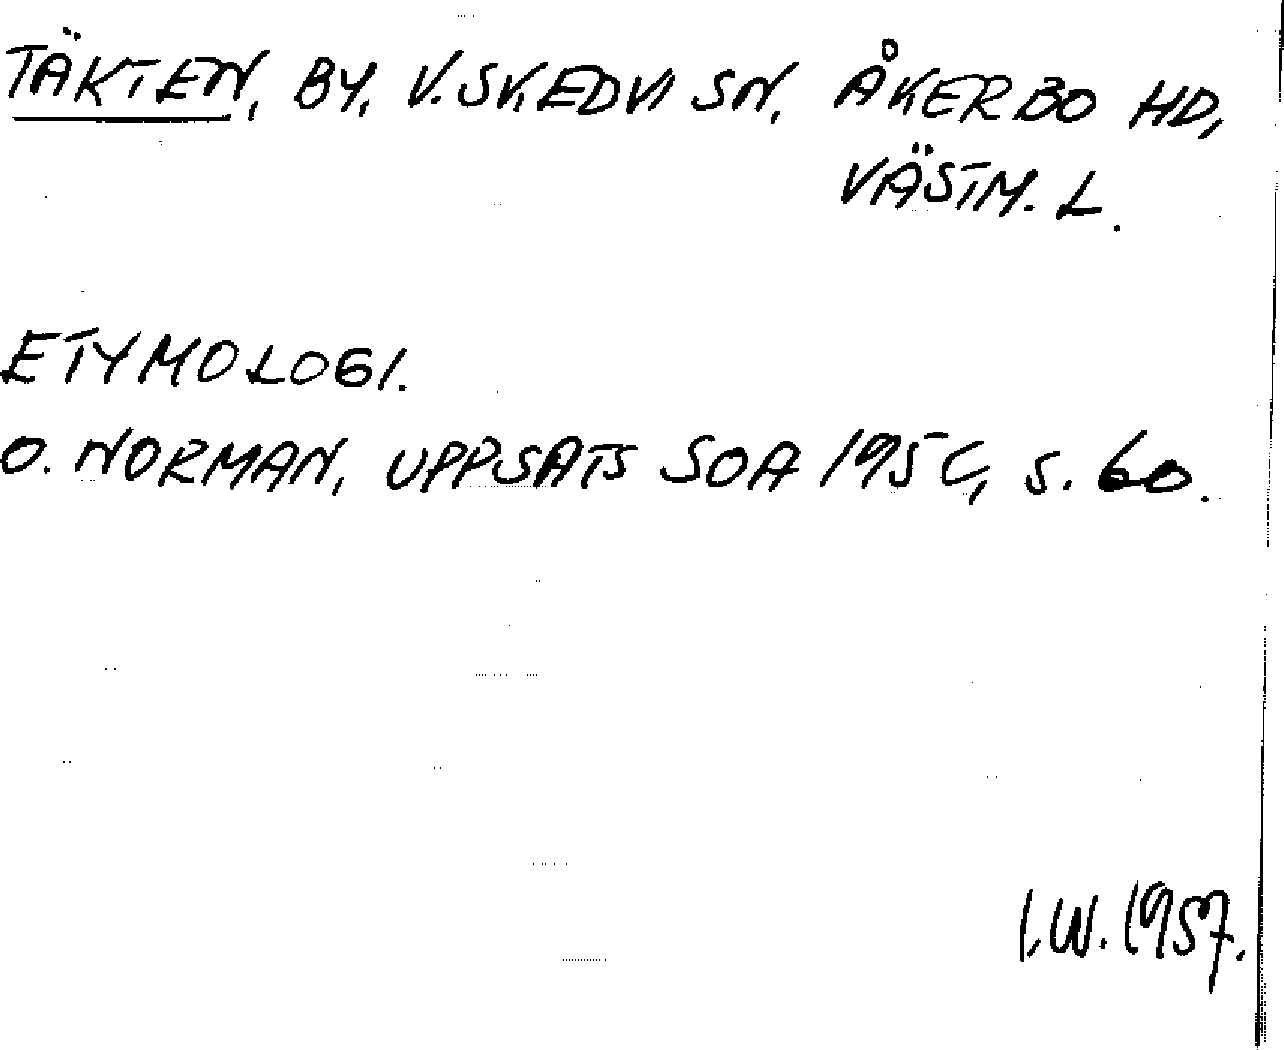 TÄKTEN, BY, V. SKEDVI SN, ÅKERBO HD,
VÄSTM. L.
ETYMOLOGI.
O. NORMAN, UPPSATS SOA 195C, S. 60.
I.W. 1957.